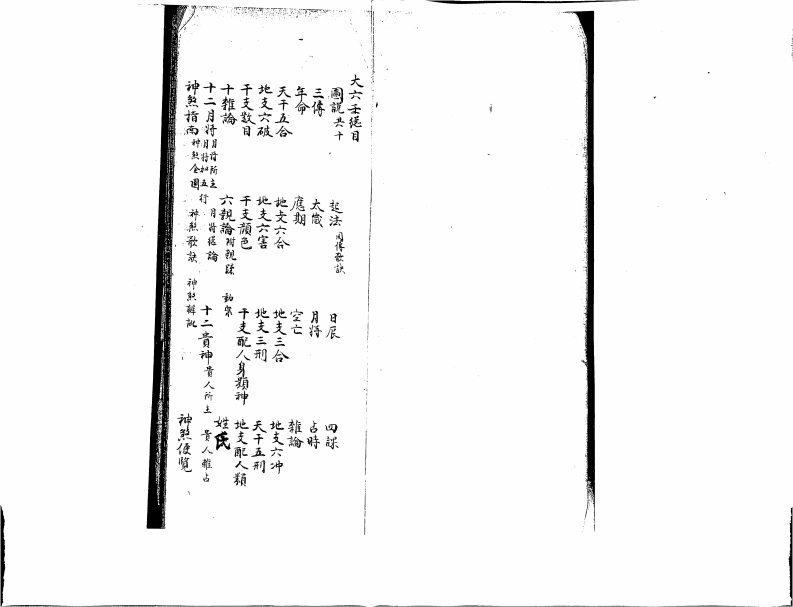 大六壬總目
圖說共十 起法 日辰 四課
三傳 太歲 月將 占時
年命 應期 空亡 雜論
天干五合 地支六合 地支三合 地支六冲
地支六破 地支六害 地支三刑 天干五刑
干支數目 干支顏色 干支配人身類神 地支配人類
十雜論 六親論附親疎 姓氏
十二月將 月將所主 月將如五行 月將總論 十二貴神 貴人所主 貴人雜占
神煞指南 神煞全圖 神煞歌訣 神煞辯訛 神煞便覽